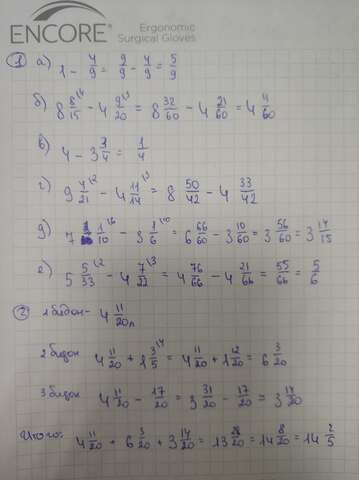 ENCORE® Ergonomic
Surgical Gloves
1 а) 1 - 4/9 = 9/9 - 4/9 = 5/9
б) 8 8/15 - 4 9/20 = 8 32/60 - 4 21/60 = 4 4/60
в) 4 - 3 3/4 = 1/4
г) 9 4/21 - 4 11/14 = 8 50/42 - 4 33/42
д) 7 1/10 - 3 1/6 = 6 66/60 - 3 10/60 = 3 56/60 = 3 14/15
е) 5 5/33 - 4 7/22 = 4 76/66 - 4 21/66 = 55/66 = 5/6
2 1 бидон - 4 11/20 л
2 бидон 4 11/20 + 1 3/5 = 4 11/20 + 1 12/20 = 6 3/20
3 бидон 4 11/20 - 17/20 = 3 31/20 - 17/20 = 3 14/20
Итого: 4 11/20 + 6 3/20 + 3 14/20 = 13 28/20 = 14 8/20 = 14 2/5